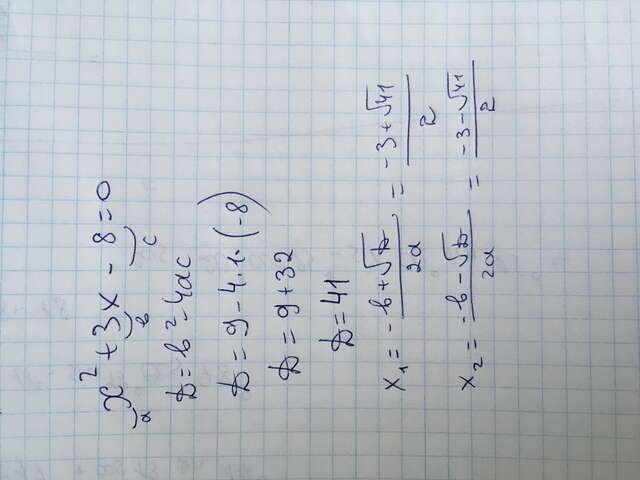 x² + 3x - 8 = 0
a b c
D = b² - 4ac
D = 9 - 4·1·(-8)
D = 9 + 32
D = 41
x₁ = (-b + √D)/2a = (-3 + √41)/2
x₂ = (-b - √D)/2a = (-3 - √41)/2